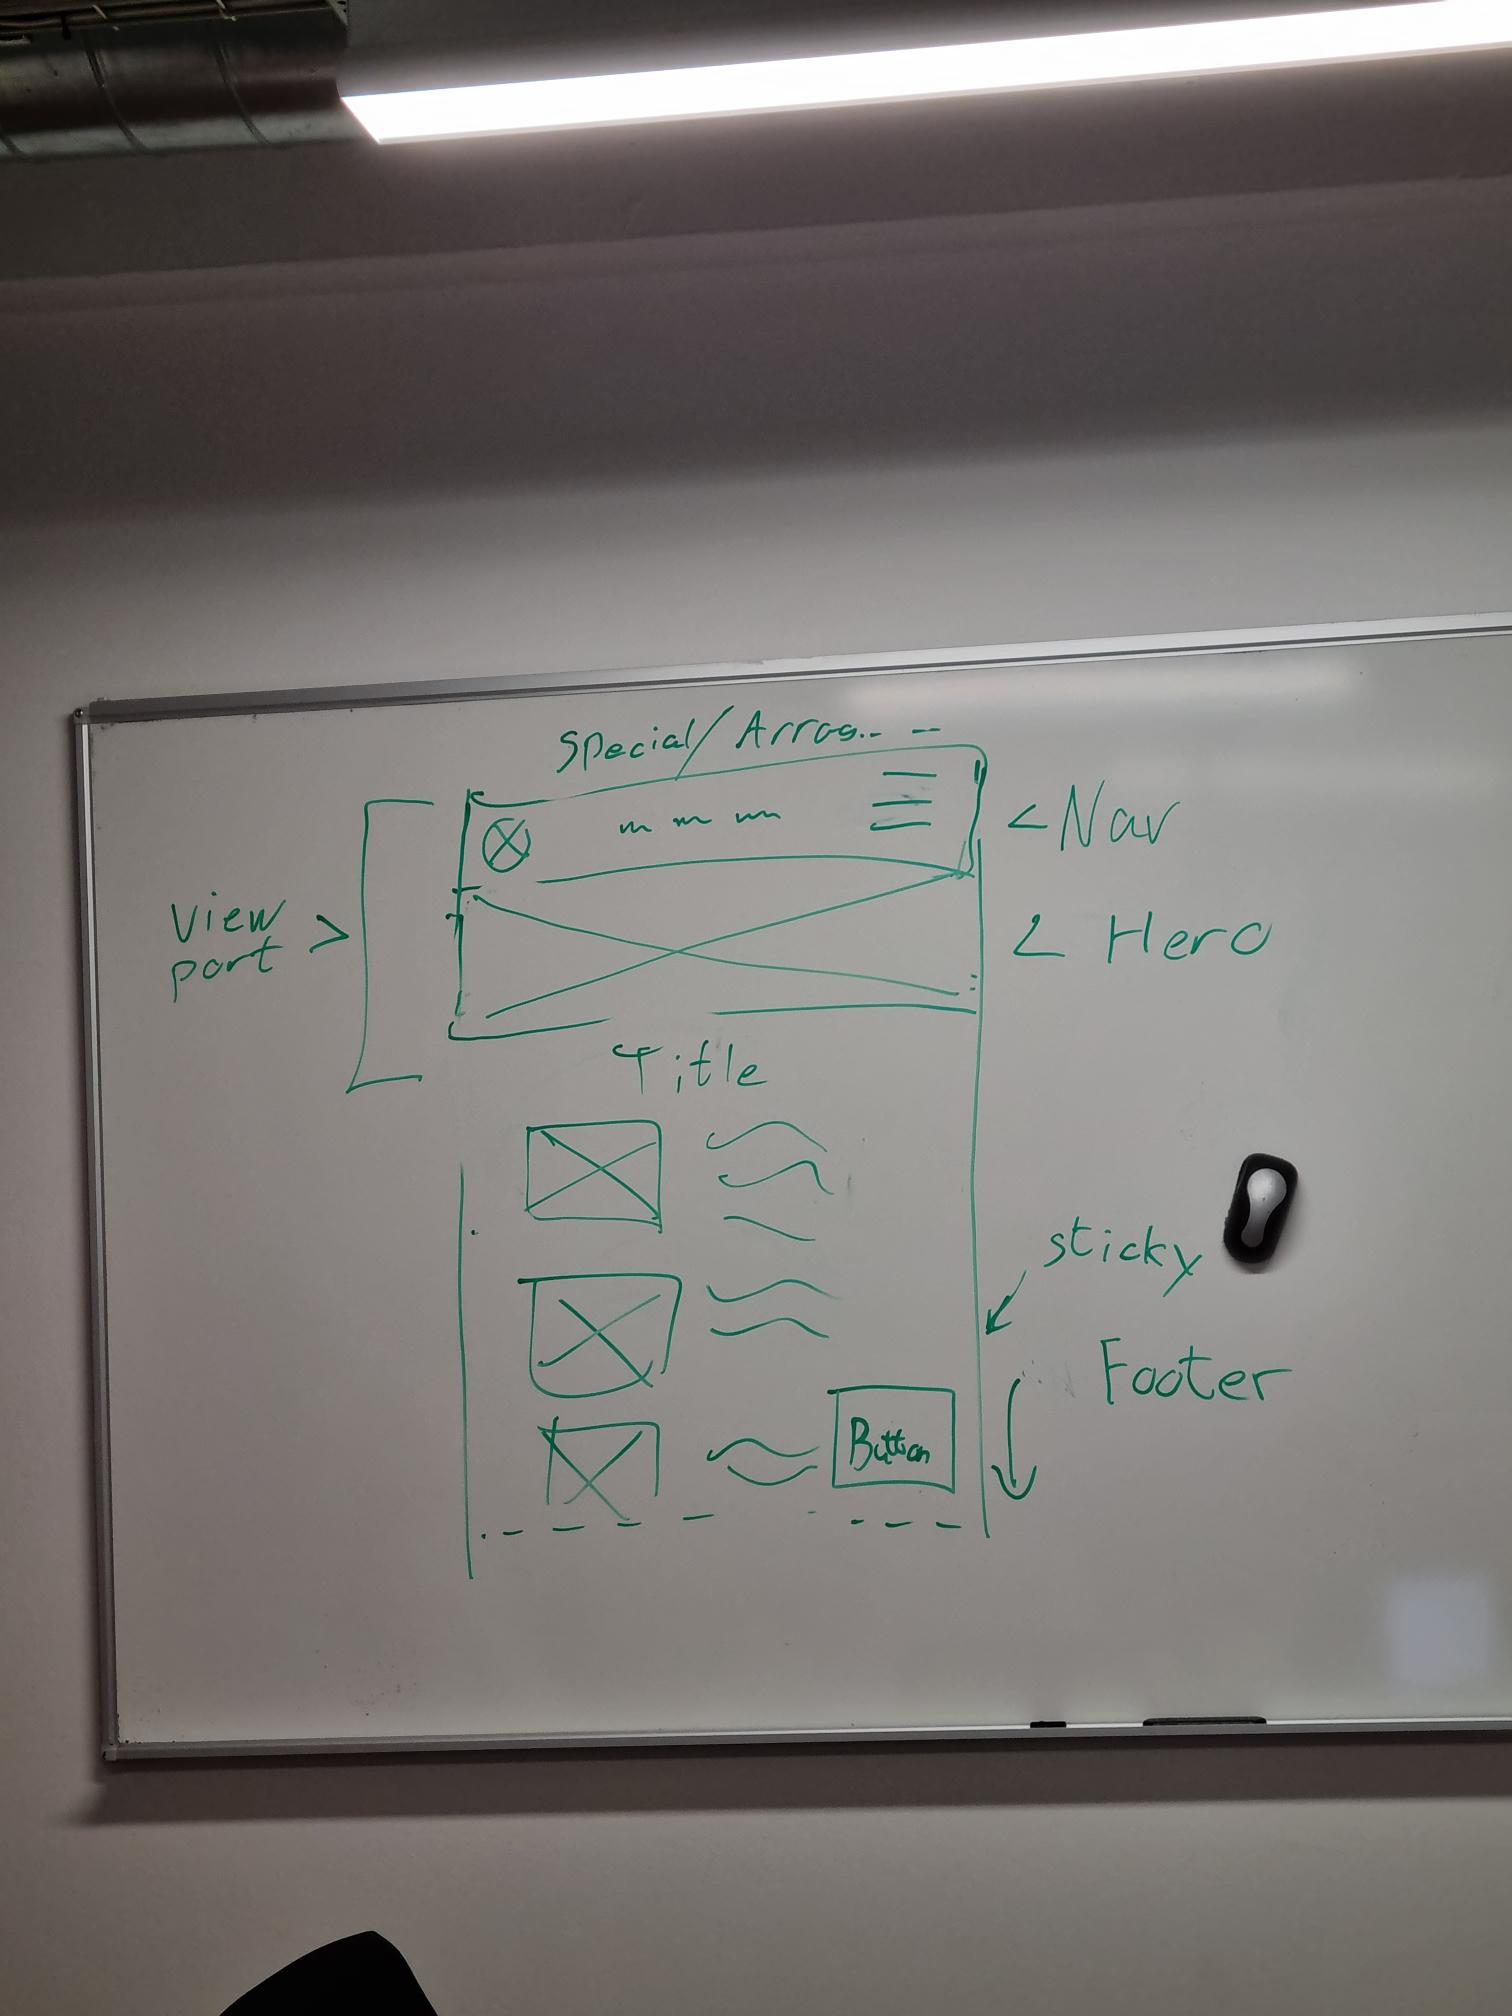 Special/Arras.. --
< Nav
View
port >
< Hero
Title
sticky
Footer
Button